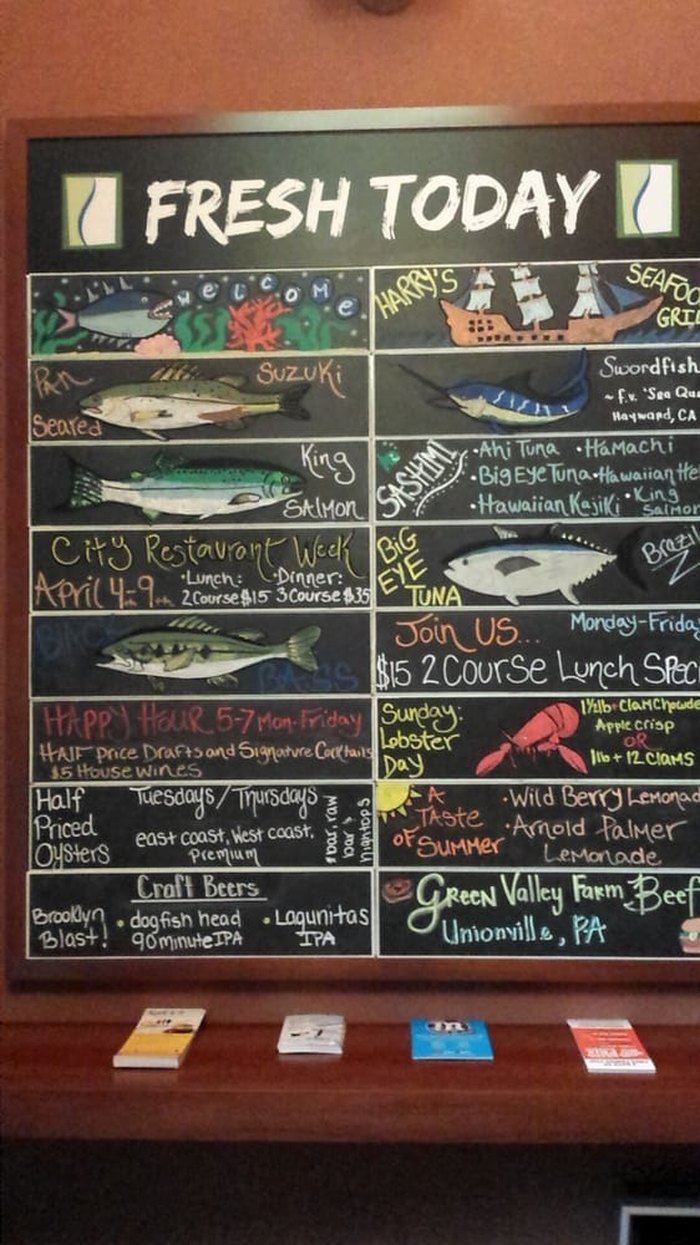 FRESH TODAY
Welcome
HARRY'S
SEAFOO
GRI
Pan
Seared
SUZUKI
Swordfish
~ f.v. 'Sea Que
Hayward, CA
King
SALMON
SASHIMI
• Ahi Tuna • Hamachi
• Big Eye Tuna • Hawaiian He
• Hawaiian Kajiki • King
Salmon
City Restaurant Week
April 4th-9th
• Lunch: • Dinner:
2 Course $15 3 Course $35
BIG
EYE
TUNA
Brazil
BLACK
BASS
Join US...
Monday-Frida
$15 2 Course Lunch Spec
HAPPY HOUR 5-7 Mon-Friday
HAlF price Drafts and Signature Cocktails
$5 House wines
Sunday:
Lobster
Day
1½lb + Clam Chowde
Apple crisp
OR
1lb + 12 CLAMS
Half
Priced
Oysters
Tuesdays/Thursdays
east coast, West coast,
premium
*bar, raw
bar &
hightops
A
Taste
of Summer
• Wild Berry Lemonad
• Arnold Palmer
Lemonade
Craft Beers
Brooklyn
Blast!
• dogfish head
90 minute IPA
• Lagunitas
IPA
Green Valley Farm Beef
Unionville, PA